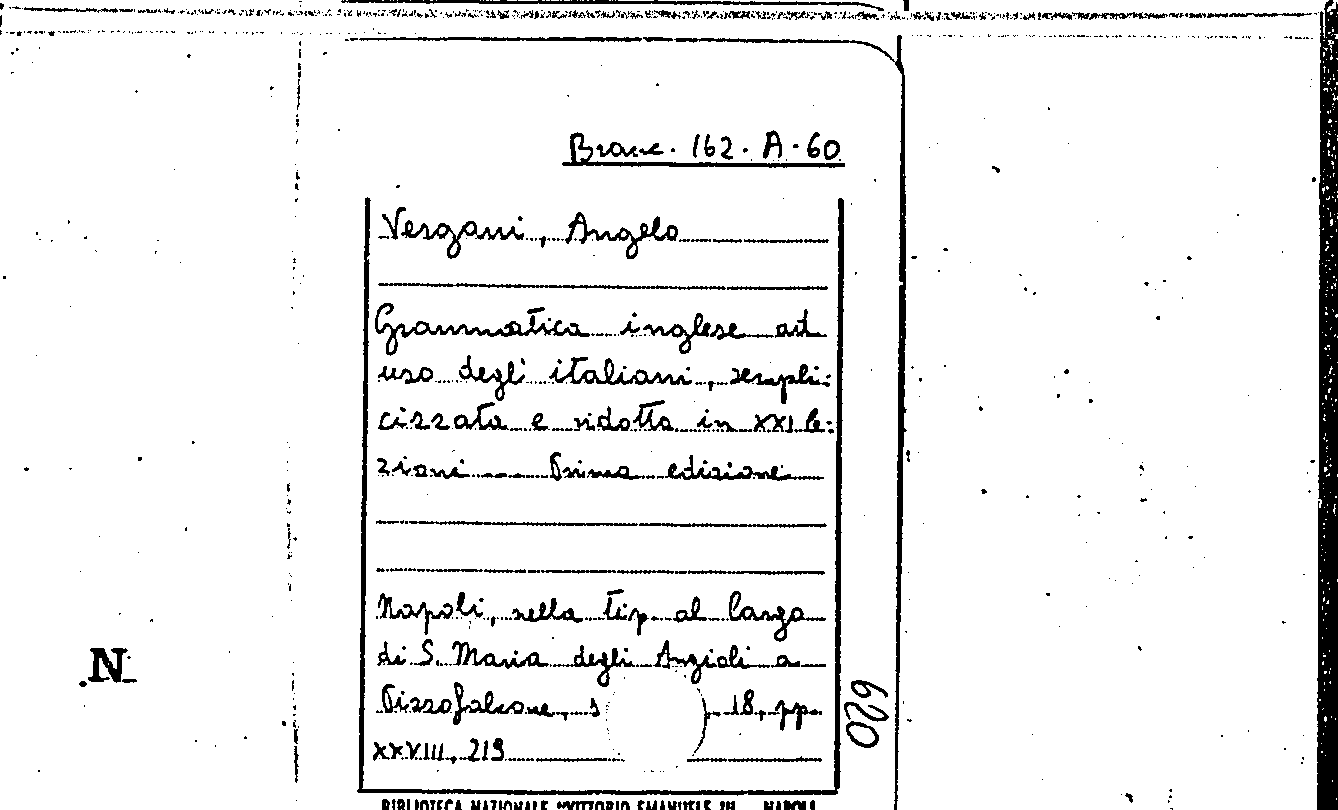 Branc. 162. A. 60
Vergani, Angelo
Grammatica inglese ad
uso degli italiani, sempli=
cizzata e ridotta in XXI le=
zioni ... Prima edizione
Napoli, nella tip. al largo
di S. Maria degli Angioli a
Pizzofalcone, s , 18, pp.
XXVIII, 219
620
N
BIBLIOTECA NAZIONALE "VITTORIO EMANUELE III" NAPOLI